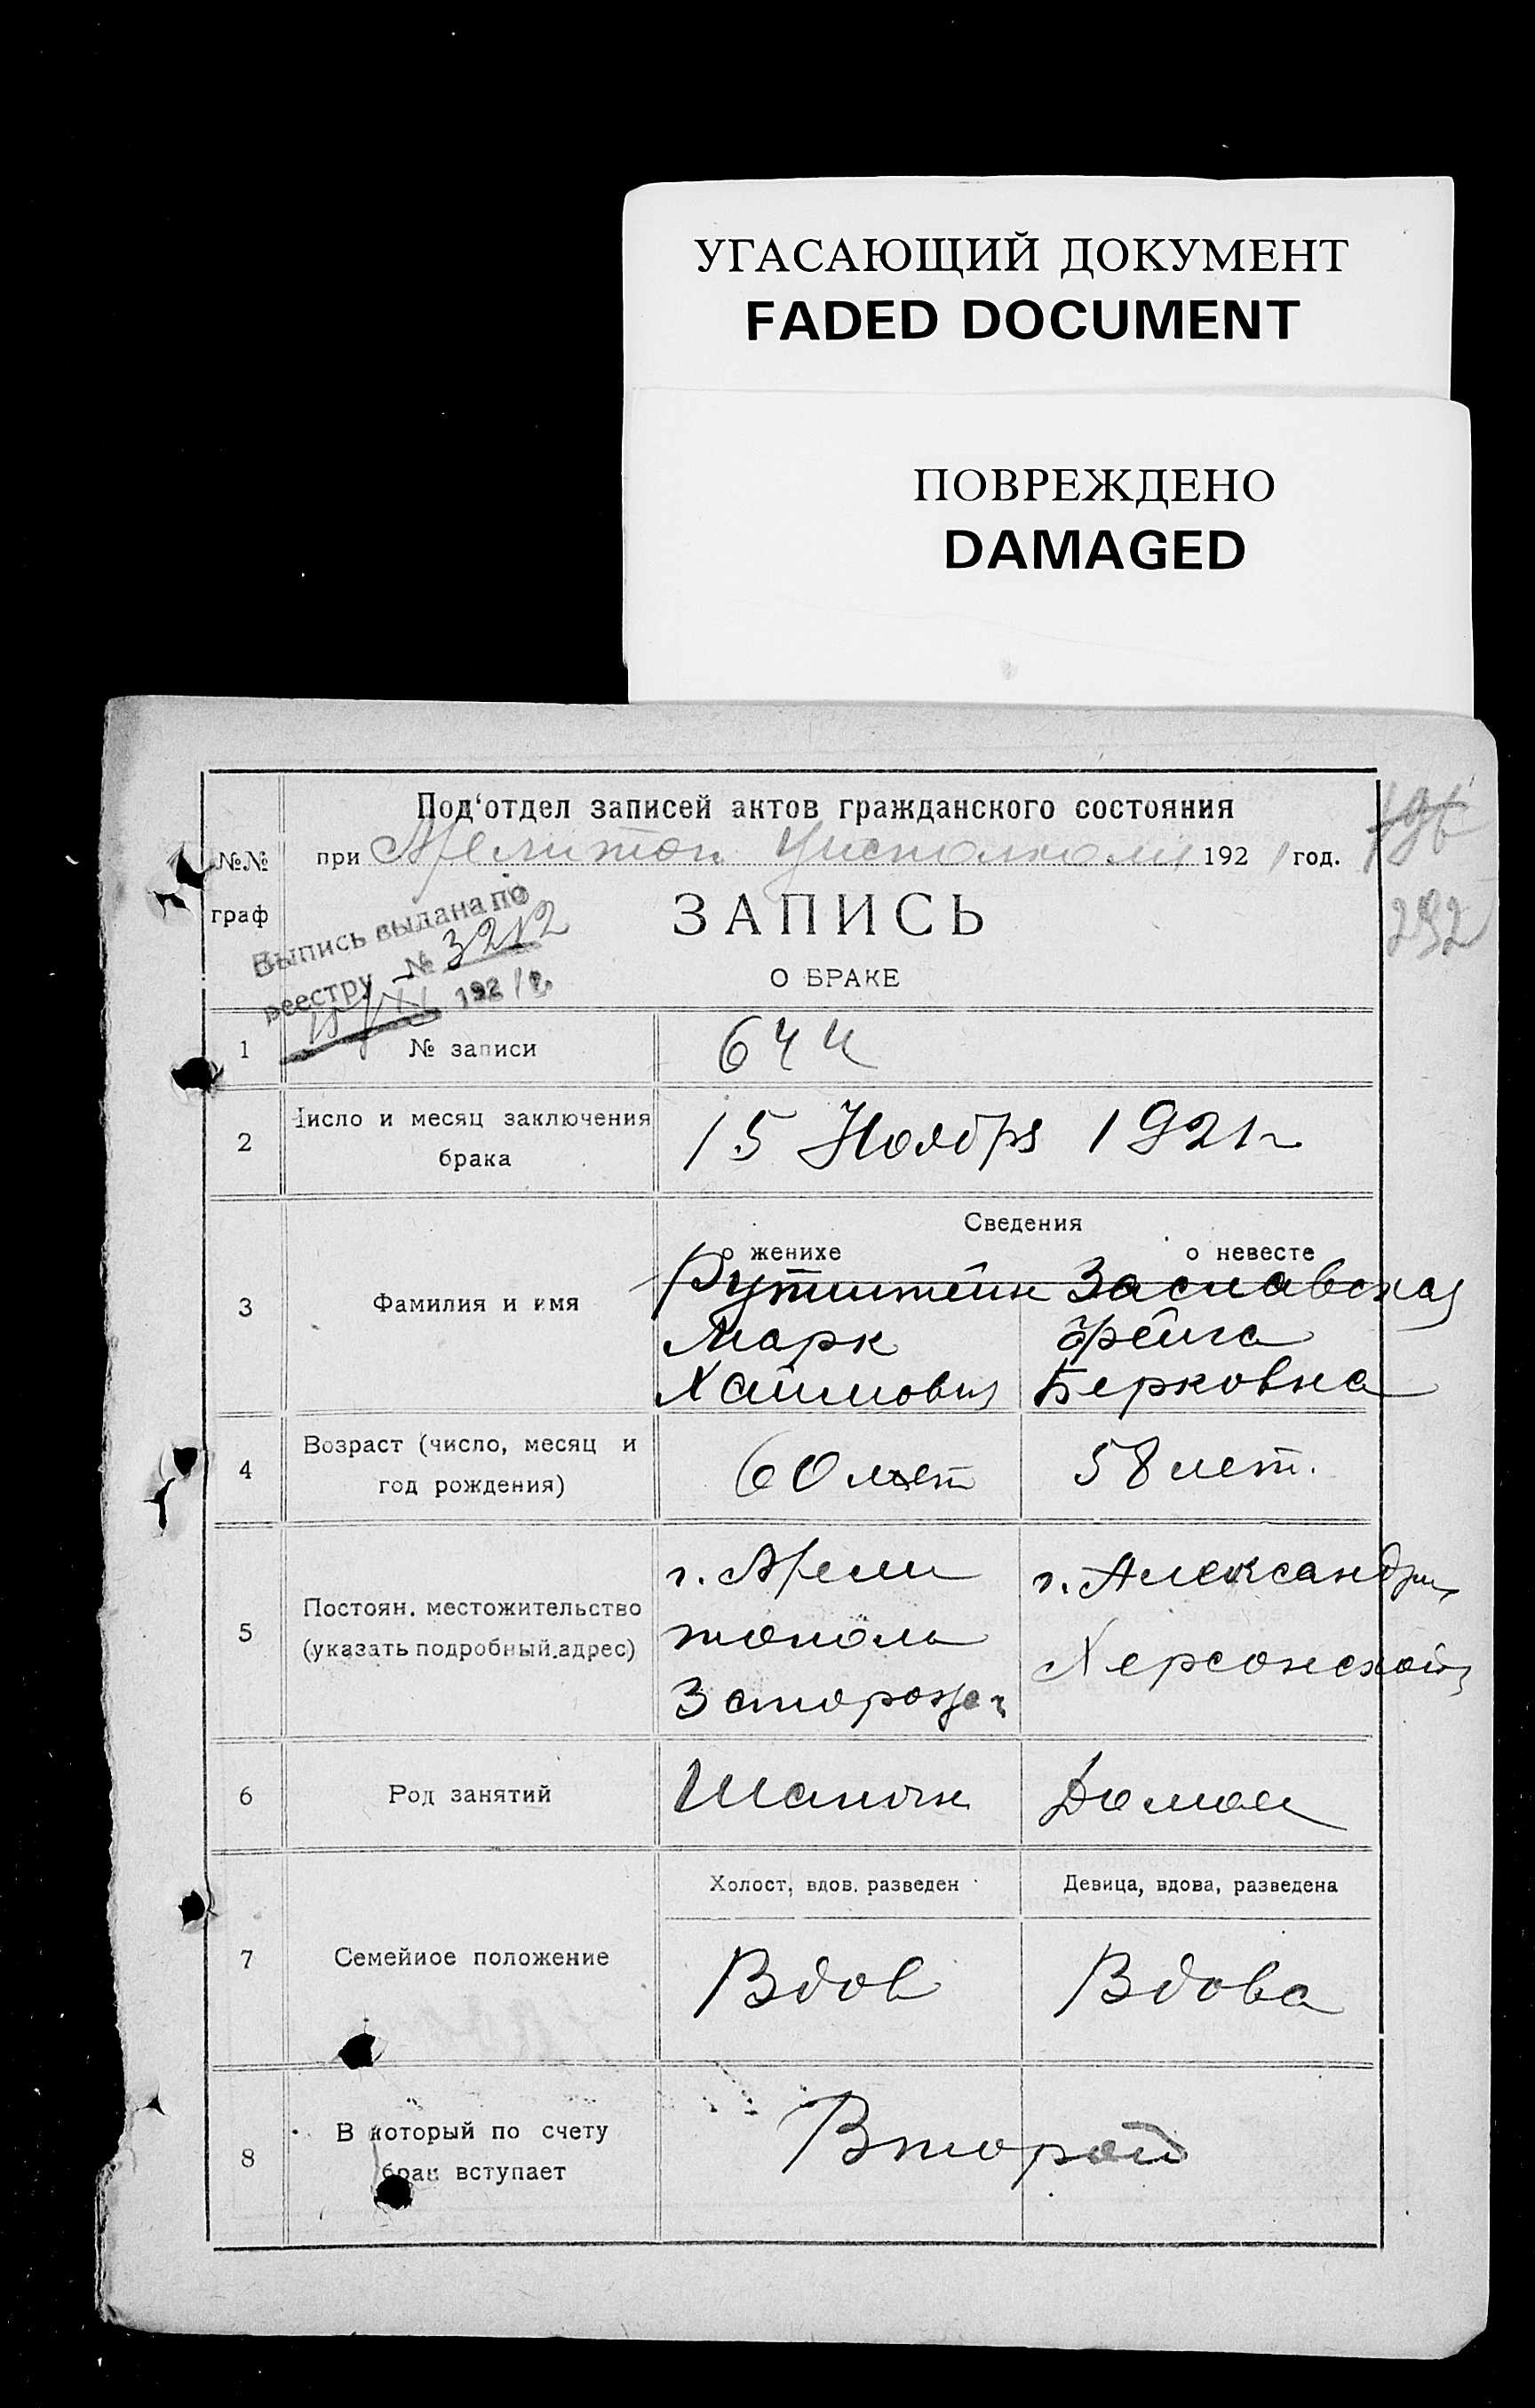 УГАСАЮЩИЙ ДОКУМЕНТ
FADED DOCUMENT
ПОВРЕЖДЕНО
DAMAGED
Под‘отдел записей актов гражданского состояния
№№ граф
при Мелитоп Уисполкоме 1921 год.
292
Выпись выдана по
реестру № 3212
15/XI 1921 г.
ЗАПИСЬ
О БРАКЕ
1 № записи 644
2 Число и месяц заключения брака 15 Ноября 1921 г
Сведения
о женихе о невесте
3 Фамилия и имя
Заславская
Марк Фрейга
Хаимович Берковна
4 Возраст (число, месяц и год рождения) 60 лет 58 лет.
5 Постоян. местожительство (указать подробный адрес)
г. Мели г. Александрия
тополь Херсонской
Запорож г
6 Род занятий Шапочн Домаш
7 Семейное положение
Холост, вдов, разведен Девица, вдова, разведена
Вдов Вдова
8 В который по счету брак вступает Второй